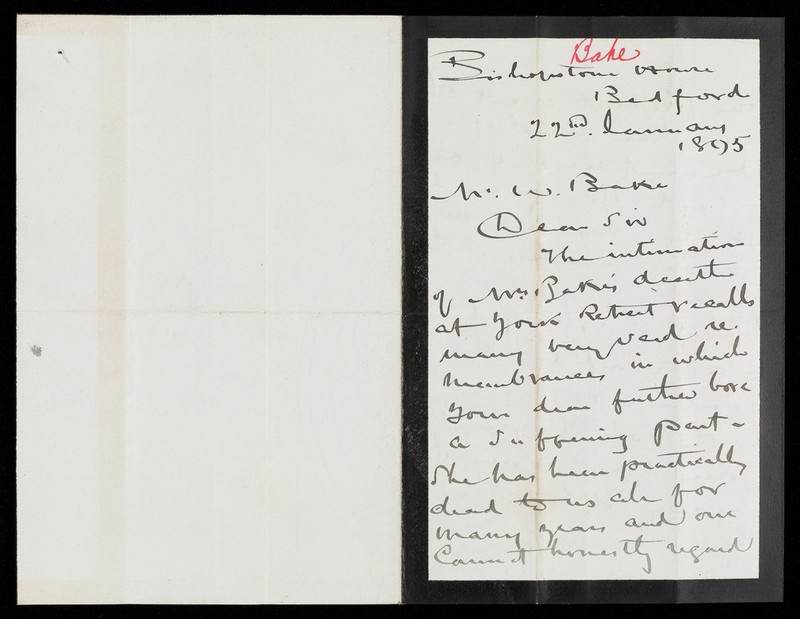 Bake
Bishopstone House
Bedford
22nd. January
1895
Mr. W. Bake
Dear Sir
The intimation
of Mrs. Bake's death
at York Retreat recalls
many very sad re-
membrances in which
your dear father bore
a suffering part -
She has been practically
dead to us all for
many years and one
Cannot honestly regard